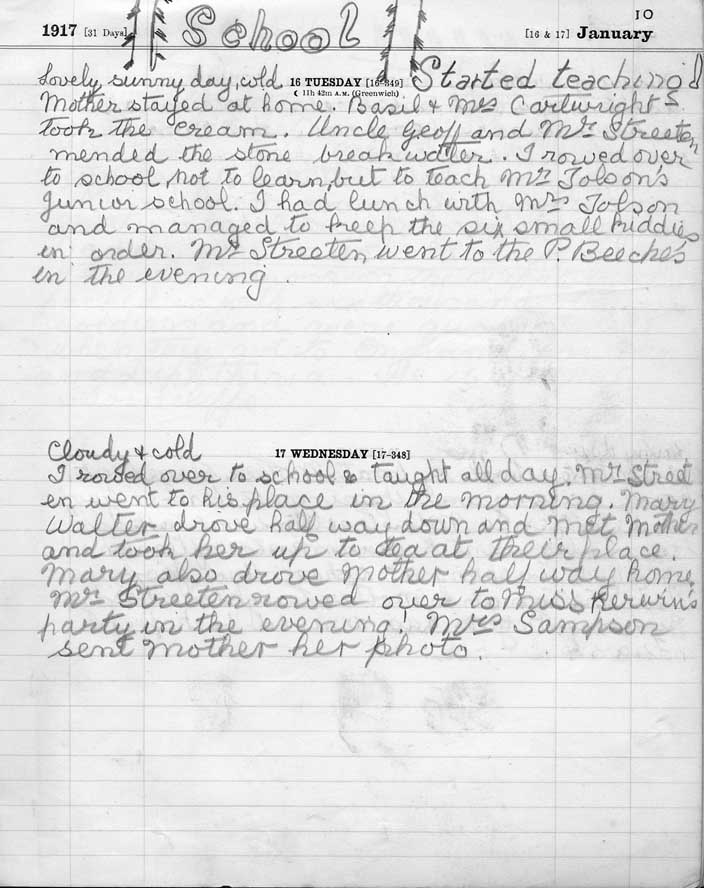 10
1917 [31 Days] School [16 & 17] January
Lovely sunny day, cold 16 TUESDAY [16-349] Started teaching!
☾ 11h 42m A.M. (Greenwich)
Mother stayed at home. Basil & Mrs Cartwright
took the cream. Uncle Geoff and Mr Streeten
mended the stone breakwater. I rowed over
to school, not to learn, but to teach Mrs Tolson's
junior school. I had lunch with Mrs Tolson
and managed to keep the six small kiddies
in order. Mr Streeten went to the P. Beeche's
in the evening.
Cloudy & cold 17 WEDNESDAY [17-348]
I rowed over to school & taught all day. Mr Street
en went to his place in the morning. Mary
Walter drove half way down and met Mother
and took her up to tea at their place.
Mary also drove Mother half way home.
Mr Streeten rowed over to Miss Kerwin's
party in the evening! Mrs Sampson
sent Mother her photo.